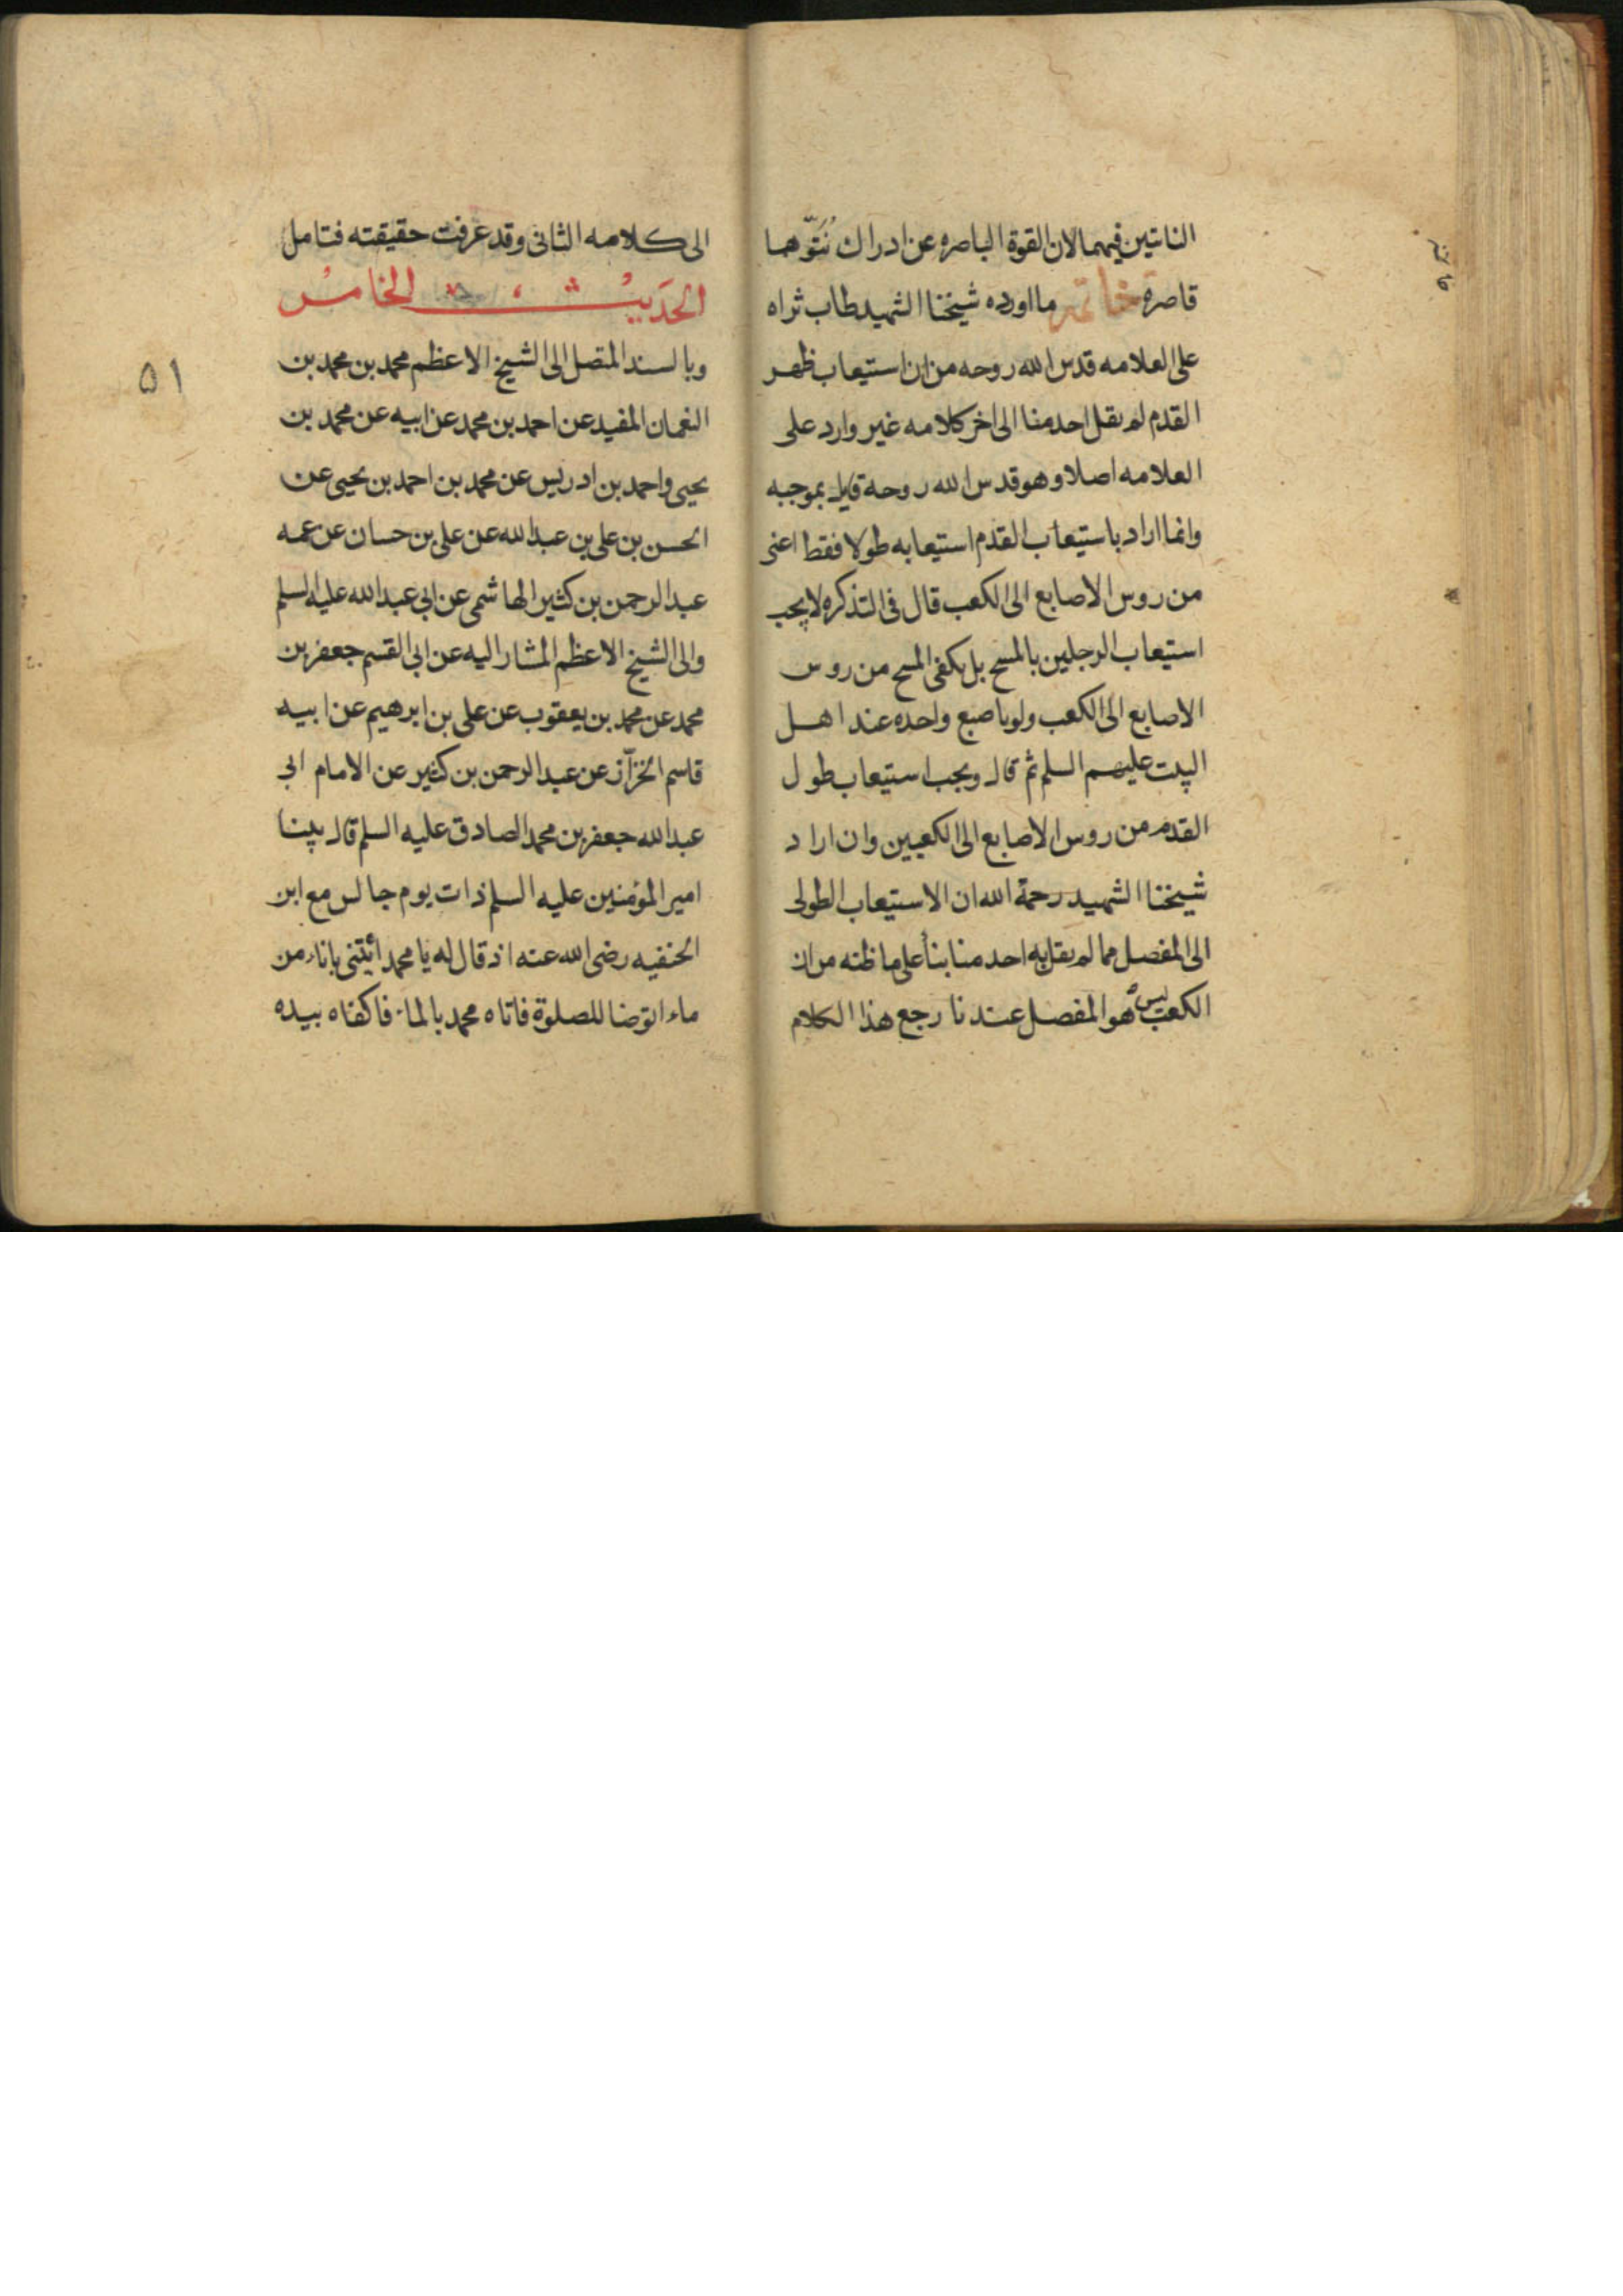 الناتين فيهما لان القوة الباصره عن ادراك نُتَوّهما
قاصره خاتمة ما اورده شيخنا الشهيد طاب ثراه
على العلامه قدس الله روحه من ان استيعاب ظهر
القدم لم يقل احد منا الى اخر كلامه غير وارد على
العلامه اصلا وهو قدس الله روحه قايل بموجبه
وانما اراد باستيعاب القدم استيعابه طولا فقط اعنى
من روس الاصابع الى الكعب قال فى التذكره لا يجب
استيعاب الرجلين بالمسح بل يكفى المسح من روس
الاصابع الى الكعب ولو باصبع واحده عند اهل
البيت عليهم السلم ثم قال ويجب استيعاب طول
القدم من روس الاصابع الى الكعبين وان اراد
شيخنا الشهيد رحمة الله ان الاستيعاب الطولى
الى المفصل مما لم يقل به احد منا بنأ على ما ظنه من ان
الكعب ليس هو المفصل عندنا رجع هذا الكلام
الى كلامه الثانى وقد عرفت حقيقته فتامل
الحديث الخامس
وبالسند المتصل الى الشيخ الاعظم محمد بن محمد بن
النعمان المفيد عن احمد بن محمد عن ابيه عن محمد بن
يحيى واحمد بن ادريس عن محمد بن احمد بن يحيى عن
الحسن بن على بن عبد الله عن على بن حسان عن عمه
عبد الرحمن بن كثير الهاشمى عن ابى عبد الله عليه السلم
والى الشيخ الاعظم المشار اليه عن ابى القسم جعفر بن
محمد عن محمد بن يعقوب عن على بن ابرهيم عن ابيه
قاسم الخزّاز عن عبد الرحمن بن كثير عن الامام ابى
عبد الله جعفر بن محمد الصادق عليه السلم قال بينا
امير المؤمنين عليه السلم ذات يوم جالس مع ابن
الحنفيه رضى الله عنه اذ قال له يا محمد ائتنى باناء من
ماء اتوضا للصلوة فاتاه محمد بالماء فاكفاه بيده
٥١